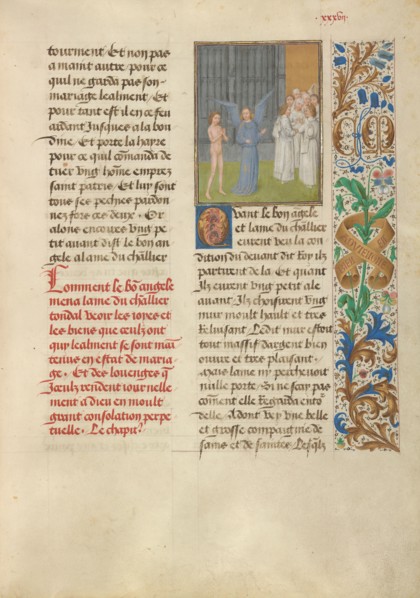 xxxvii
tourment / Et non pas
a maint autre pour ce
quil ne garda pas son
mariage lealment / Et
pour tant est il en ce feu
ardant Jusques a la bon
dine / Et porte la hayre
pour ce quil comanda de
tuer vng home empres
saint patris / Et luy sont
tous ses pechies pardon
nez fors ces deux / Or
alons encoires vng pe
tit auant dist le bon an
gele a lame du chlier
Comment le bo angele
mena lame du chlier
tondal veoir les ioyes et
les biens que ceulz ont
qui lealment se sont main
tenus en estat de maria
ge / Et des louenges q
Iceulx rendent iournelle
ment a dieu en moult
grant consolation perpe
tuelle / Le chapit
Quant le bon angele
et lame du chlier
eurent veu la con
dition du deuant dit Roy ilz
partirent de la / Et quant
ilz eurent vng petit ale
auant / Ilz choisirent vng
mur moult hault et tres
Reluisant / Ledit mur estoit
tout massif dargent bien
ouure et tres plaisant /
mais lame ny percheuoit
nulle porte / Si ne scay pas
coment elle Regarda ento
delle / Adont vey vne belle
et grosse compaignie de
sains et de saintes / Lesqlz